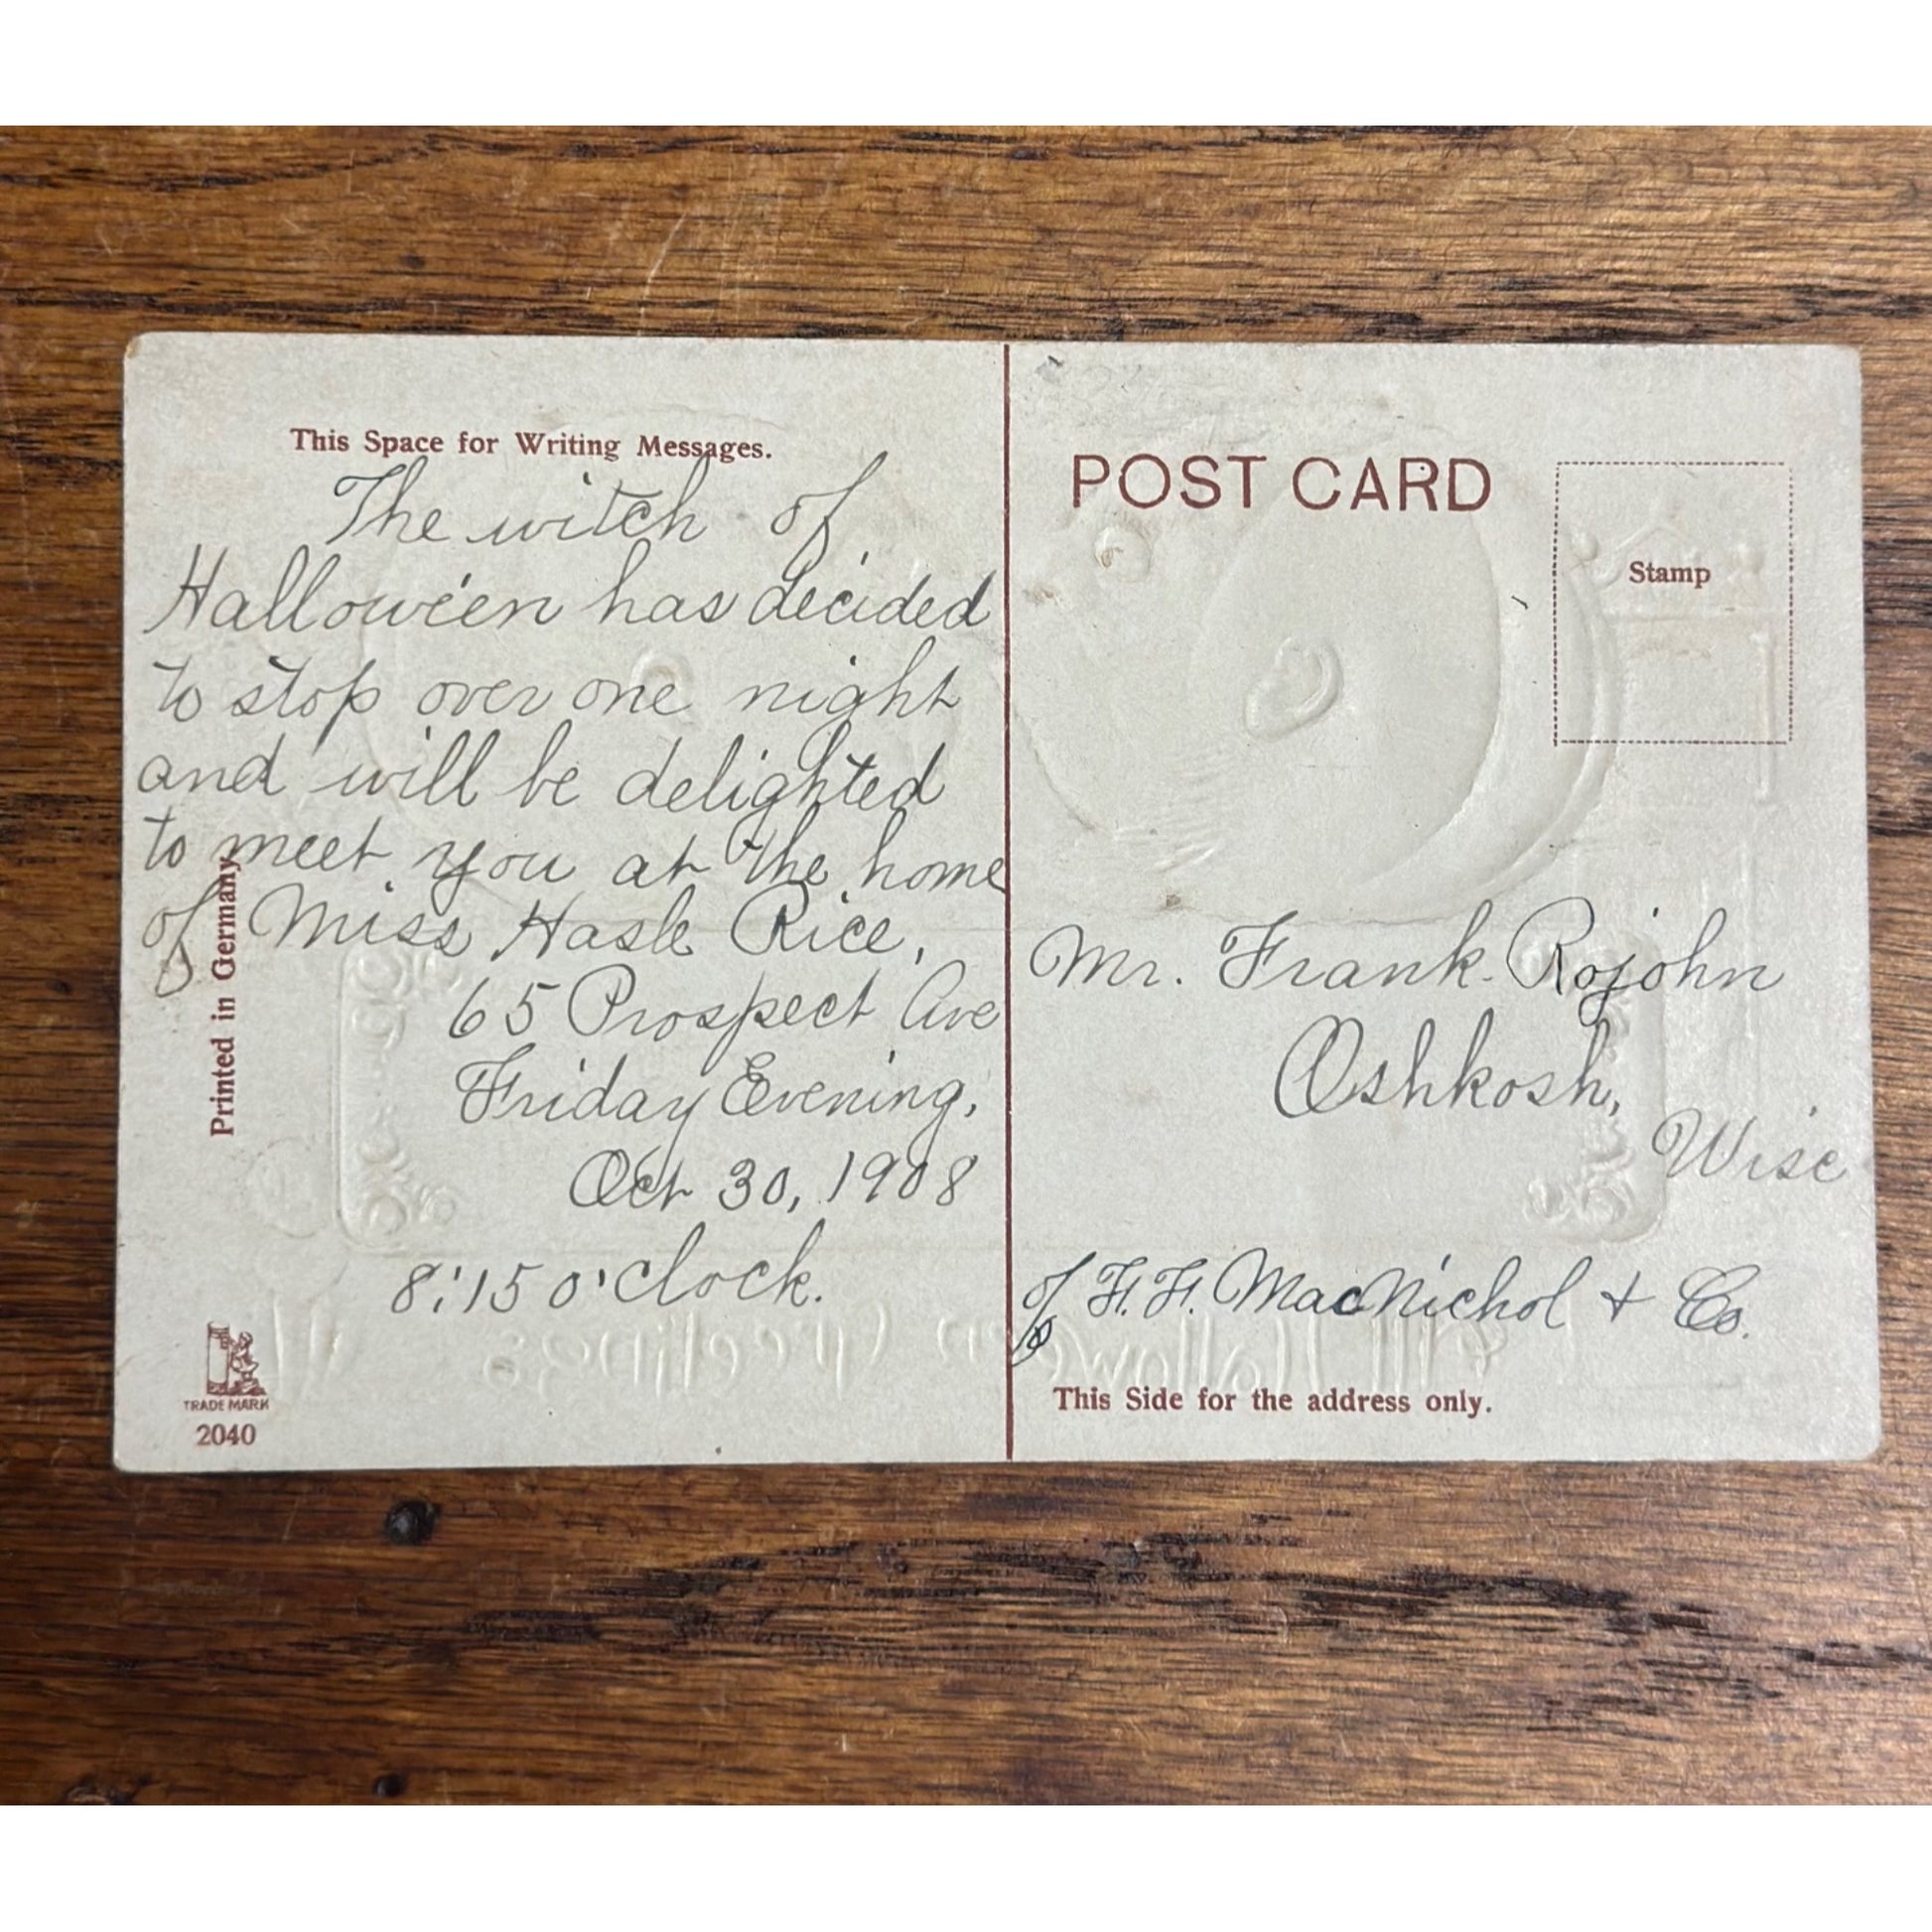 This Space for Writing Messages.
The witch of
Hallowe'en has decided
to stop over one night
and will be delighted
to meet you at the home
of Miss Hasle Rice,
65 Prospect Ave
Friday Evening,
Oct 30, 1908
8:15 o'clock.
Printed in Germany
TRADE MARK
2040
POST CARD
Stamp
Mr. Frank Rojohn
Oshkosh,
Wisc
of F. F. MacNichol + Co.
This Side for the address only.